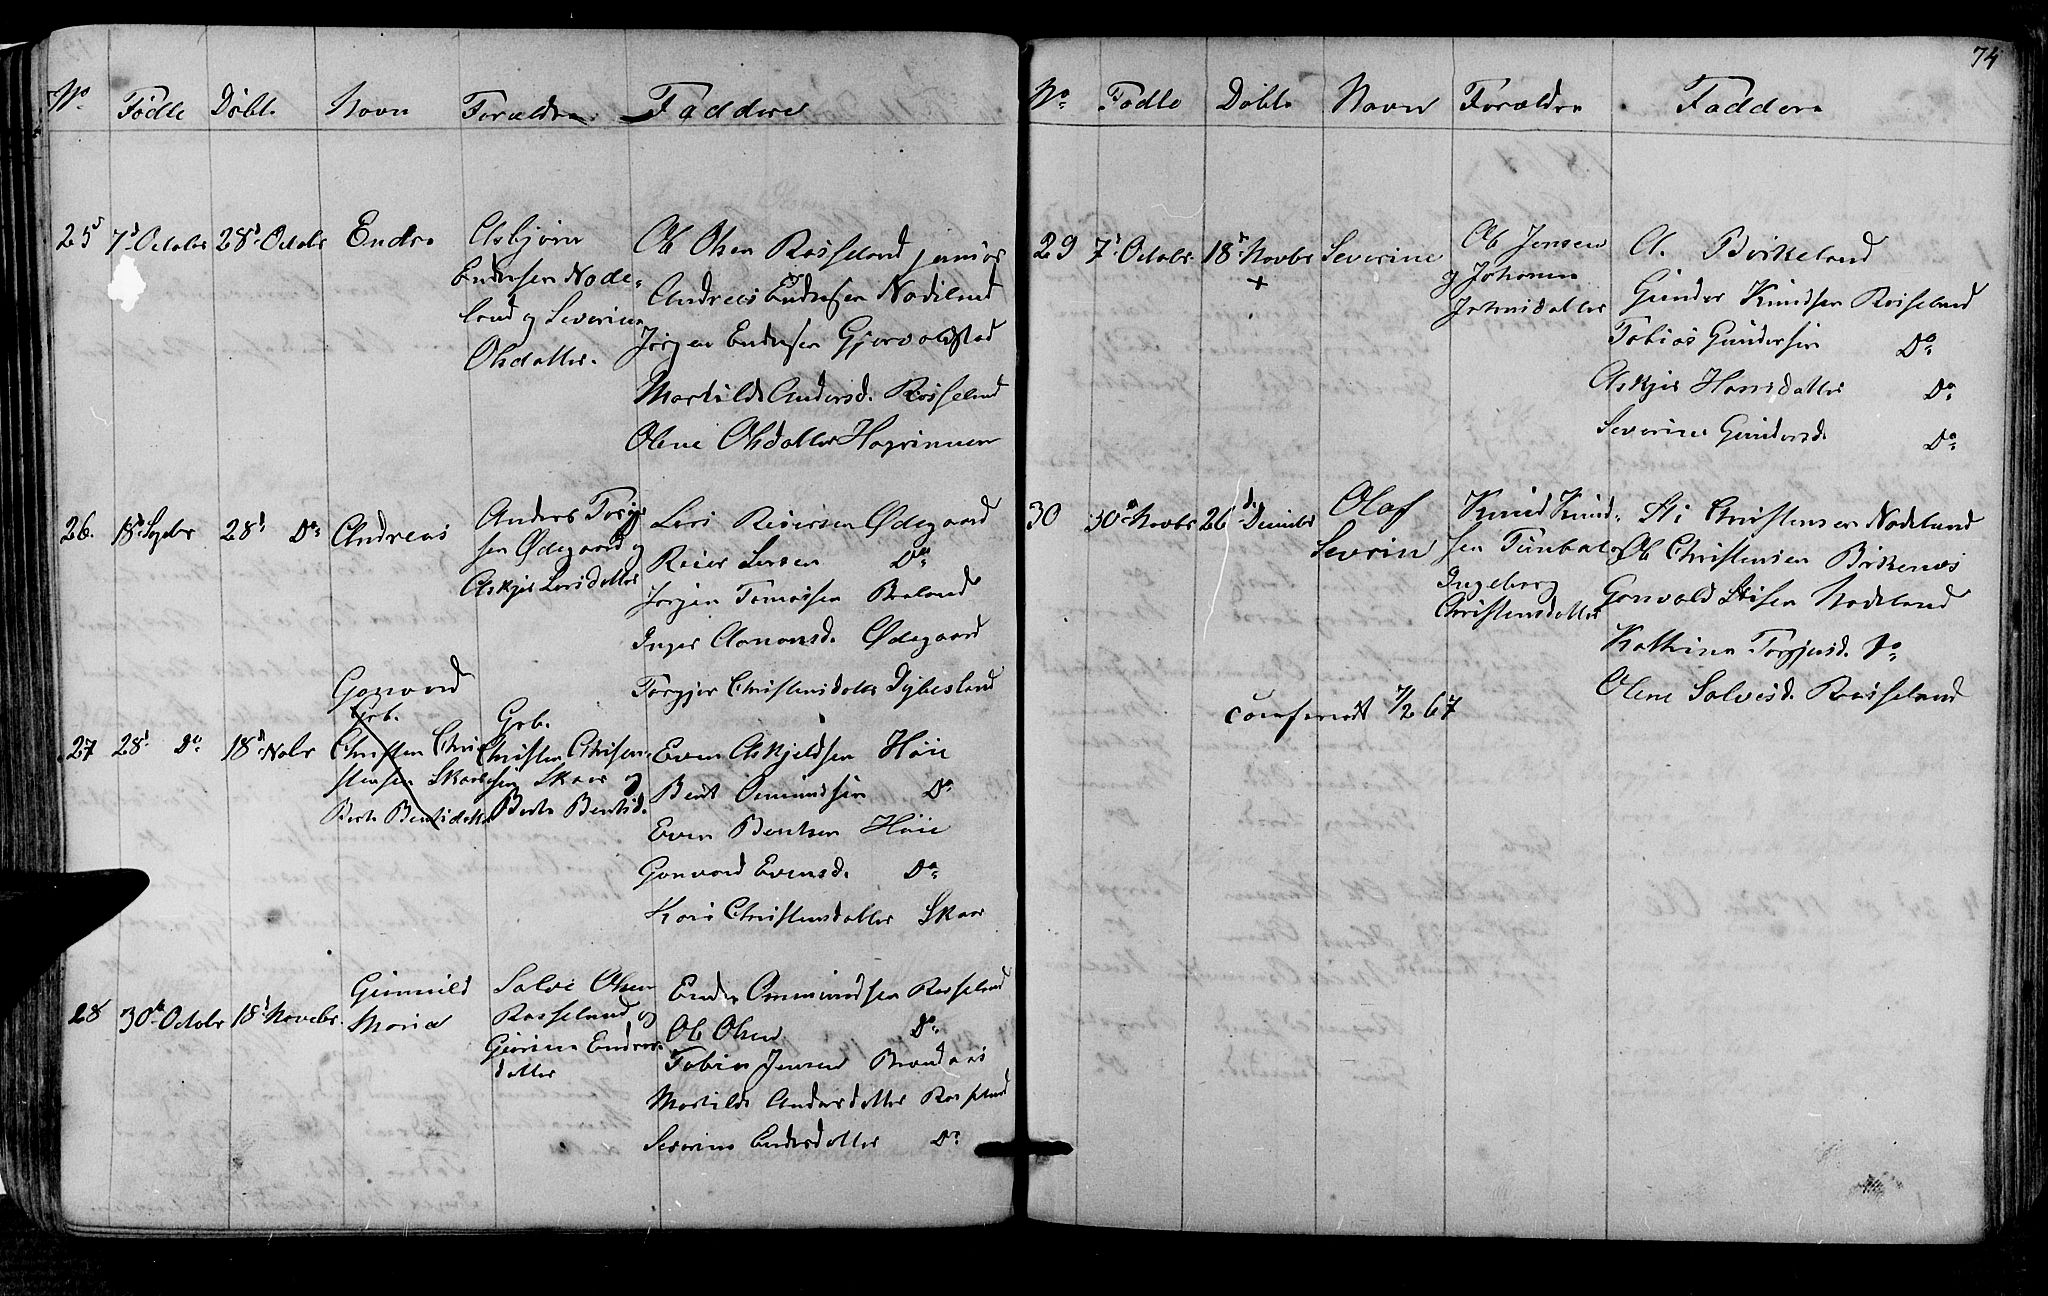 No Fødte Døbte Navn Forældre Faddere
25 7d October 28d Octobr Endre
Asbjørn
Endresen Node-
land og Severine
Olsdatter.
Ole Olsen Rosseland junior
Andreas Endresen Nodeland
Jørgen Endresen Gjervoldstad
Martilde Andersd. Rosseland
Olene Olsdatter
26. 18d 28d Do Andreas
Anders Torjs
sen Ødegaard og
Askjer Larsdatter
Lars Reiersen Ødegaard
Reier Larsen Do
Jørgen Tomassen
Inger Aanonsd. Ødegaard
Torgjer Christensdatter Dybesland
27 28d Do 18d Nobr
Gonvord
Grb.
Christen Chri
stensen Skaar
Berte Bentsdatter
Grb.
Christen Christen-
sen Skaar og
Berte Bentsd.
Even Askjeldsen Høie
Bent Omundsen Do
Even Bentsen Høie
Gonvord Evensd. Do
Kari Christensdatter Skaar
28 30te Octobr 18d Novebr.
Gunnild
Maria
Salve Olsen
Rosseland og
Gurine Endres
datter
Endre Ommundsen Rosseland
Ole Olsen Do
Tobias Jensen Brandaas
Martilde Andersdatter Rosseland
Severine Endersdatter Do
74
No Fødte Døbte Navn Forældre Faddere
29 7d Octobr 18d Novbr Severine
+
Ole Jensen
og Johanne
Johnsdatter
A. Birkeland
Gunder Knudsen Rosseland
Tobias Gundersen Do
Askjer Hansdatter Do
Severine Gundersd. Do
30 30d Novbr 26d Decmbr
Olaf
Severin
Knud Knud-
sen Tunbal og
Ingeborg
Christensdatter
Sti Christensen Nodeland
Ole Christensen Birkenes
Gonvald Stisen Nodeland
Kathrine Torgjusd. Do
Olene Salvesd. Rosseland
confereret 7/2 67